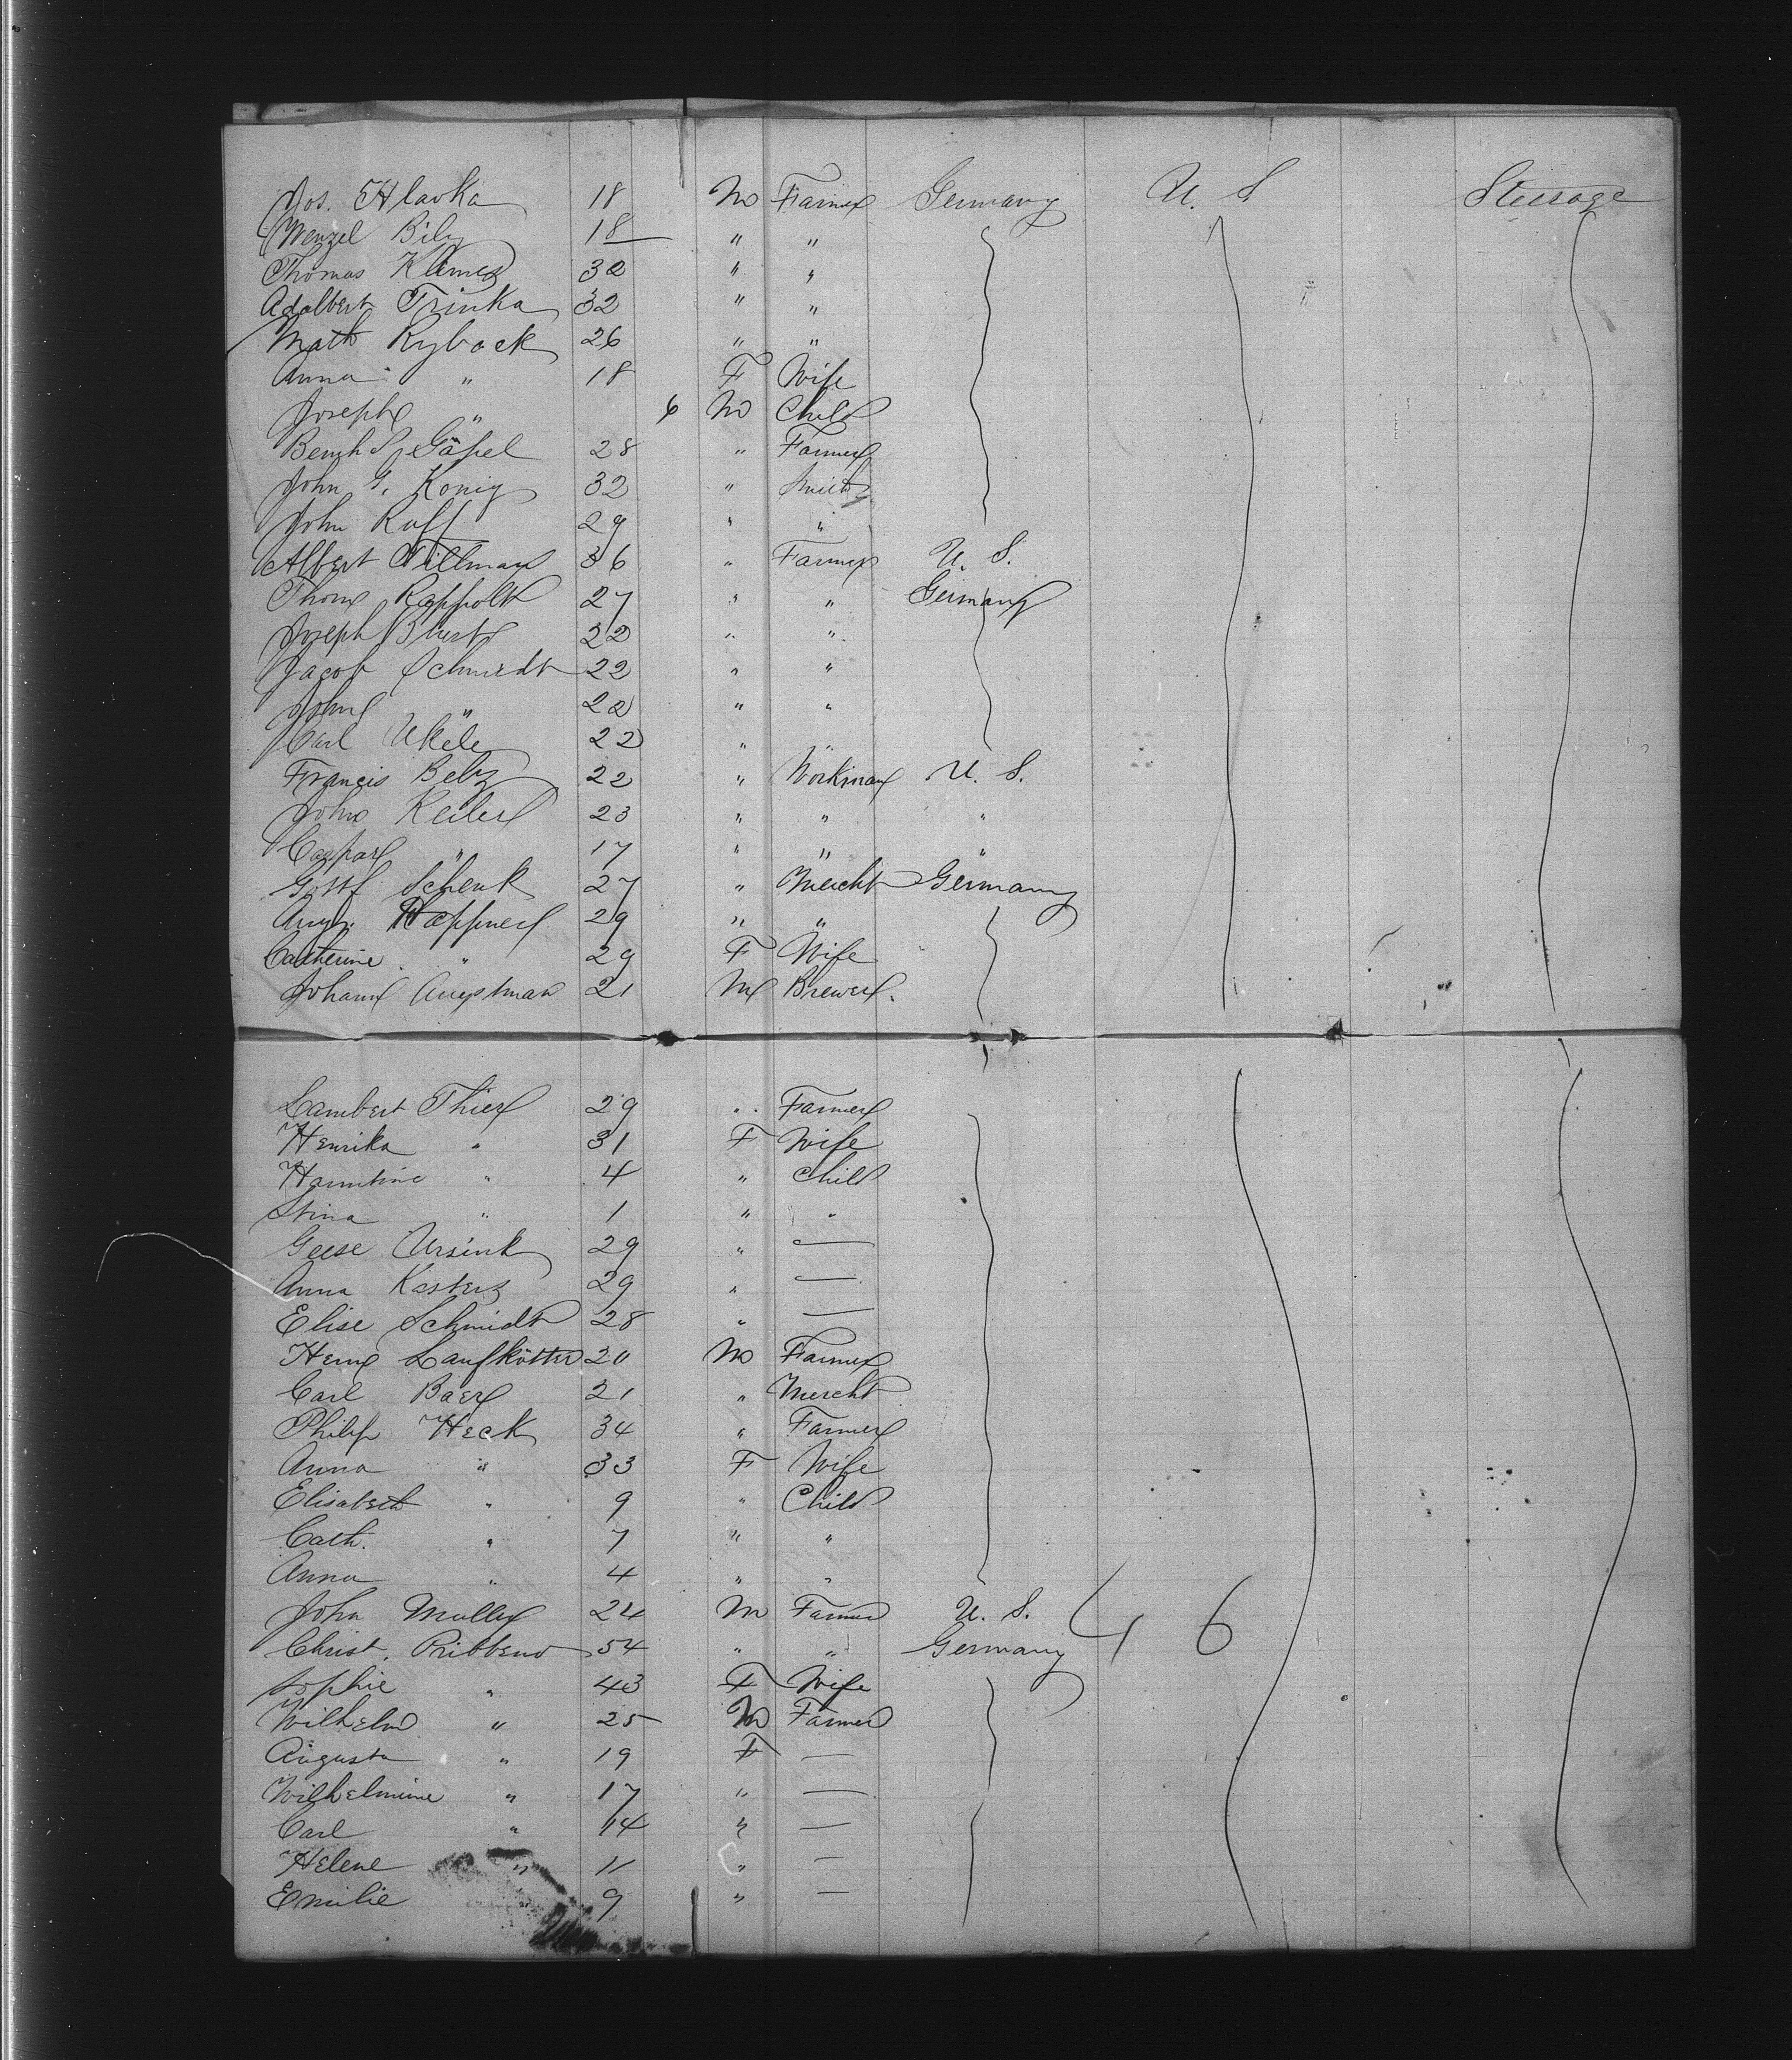 Jos. Hlavka 18 M Farmer Germany U. S Steerage
Wenzel Bily 18 " "
Thomas Klimes 32 " "
Adalbert Trinka 32 " "
Math Ryback 26 " "
Anna " 18 F Wife
Joseph " 6 M Child
Bernh Göpel 28 " Farmer
John G. Konig 32 " Smith
John Ruff 29 " "
Albert Tillman 36 " Farmer U. S.
Thom Rappolt 27 " " Germany
Joseph 22 " "
Jacob Schmidt 22 " "
John " 22 " "
Carl Ukele 22 " "
Francis Belz 22 " Workman U. S.
John Keiler 23 " " "
Caspar " 17 " " "
Gottf Schenk 27 " Mercht Germany
Aug. Höppner 29 " "
Catherine " 29 F Wife
Johann Angstman 21 M Brewer.
Lambert Thier 29 " Farmer
Henrika " 31 F Wife
Harmtine " 4 " Child
Stina " 1 " "
Geese Ursink 29 " —
Anna Kosters 29 " —
Elise Schmidt 28 " —
Henry Laufkötter 20 M Farmer
Carl Baer 21 " Mercht
Philip Heck 34 " Farmer
Anna " 33 F Wife
Elisabeth " 9 " Child
Cath. " 7 " "
Anna " 4 " "
John Muller 24 M Farmer U. S. 46
Christ. Pribbeno 54 " " Germany
Sophie " 43 F Wife
Wilhelm " 25 M Farmer
Augusta " 19 F —
Wilhelmine " 17 " —
Carl " 14 " —
Helene " 11 " —
Emilie " 9 " —